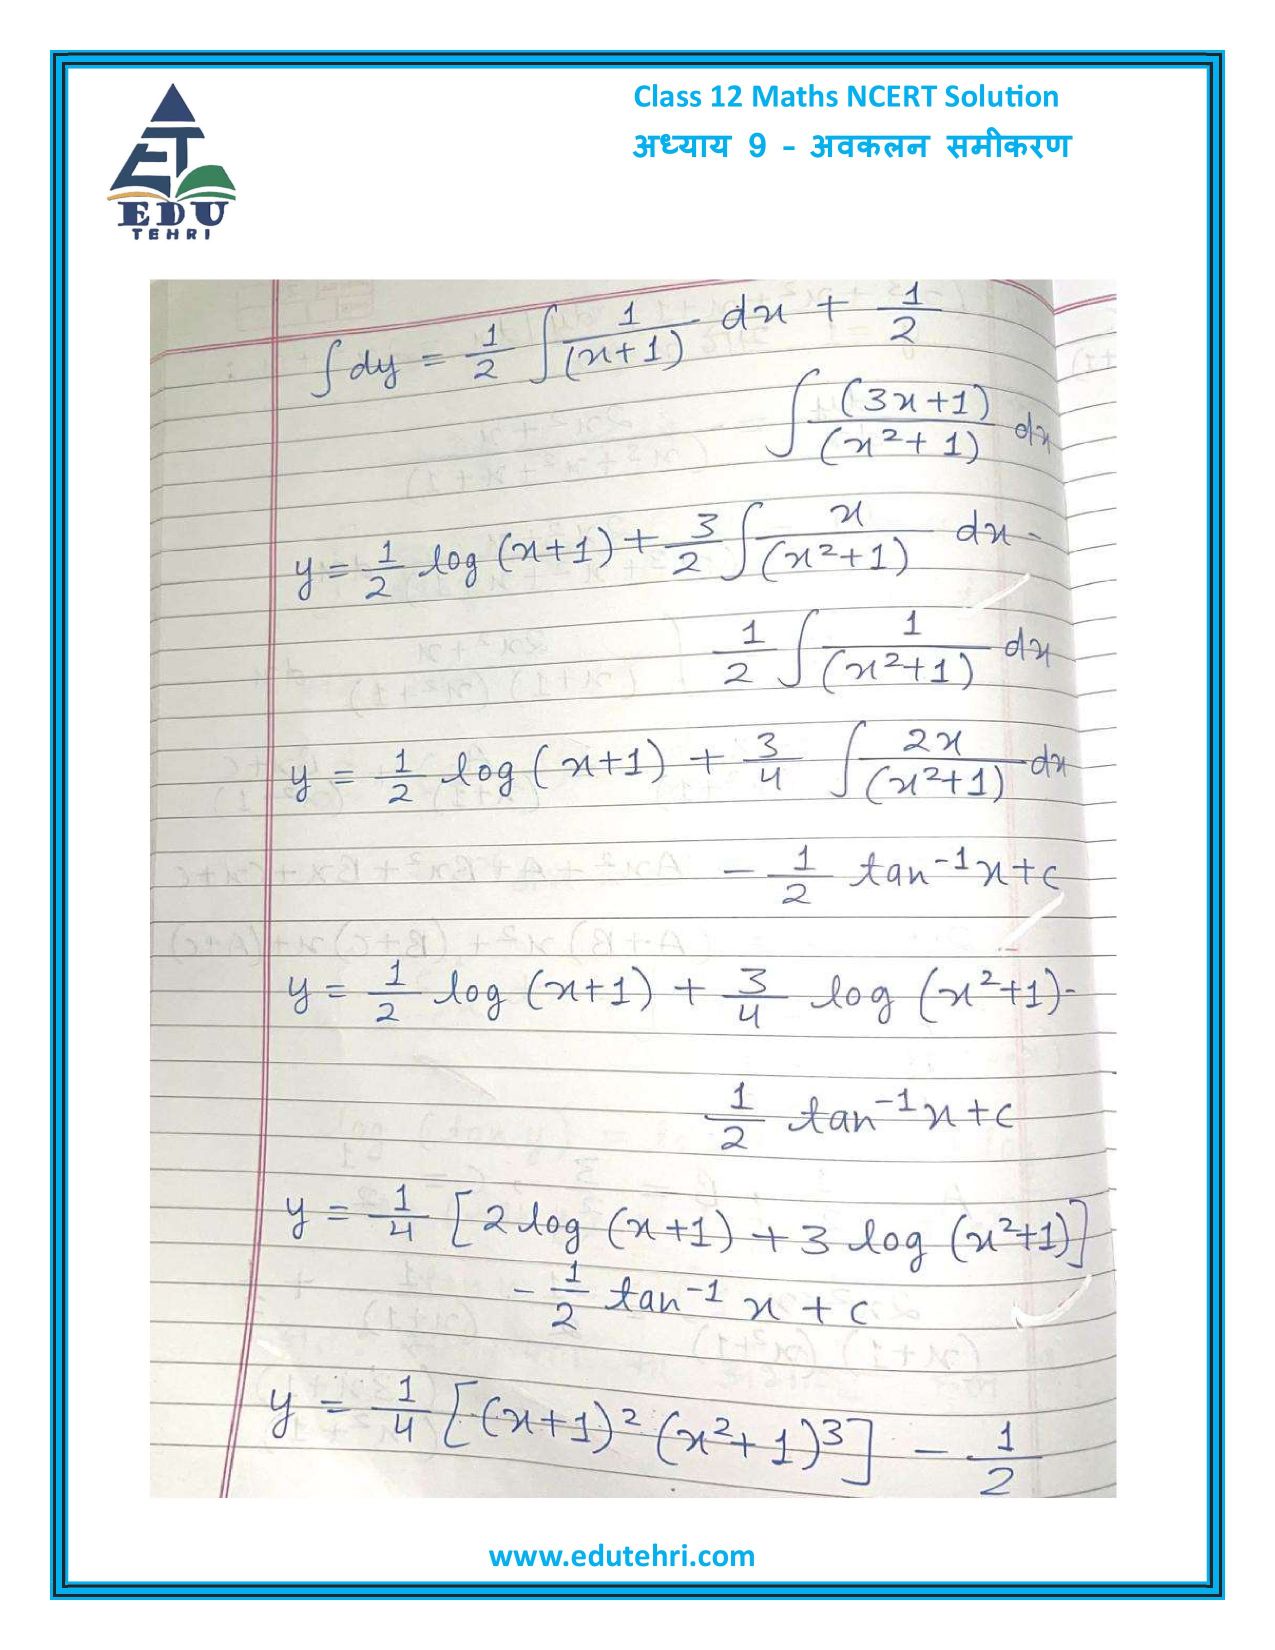 Class 12 Maths NCERT Solution
अध्याय 9 - अवकलन समीकरण
EDU
TEHRI
∫dy = 1/2 ∫ 1/(x+1) dx + 1/2
∫ (3x+1)/(x²+1) dx
y = 1/2 log(x+1) + 3/2 ∫ x/(x²+1) dx -
1/2 ∫ 1/(x²+1) dx
y = 1/2 log(x+1) + 3/4 ∫ 2x/(x²+1) dx
- 1/2 tan⁻¹x+c
y = 1/2 log(x+1) + 3/4 log(x²+1) -
1/2 tan⁻¹x+c
y = 1/4 [2log(x+1) + 3log(x²+1)]
- 1/2 tan⁻¹ x + c
y = 1/4 [(x+1)² (x²+1)³] - 1/2
www.edutehri.com